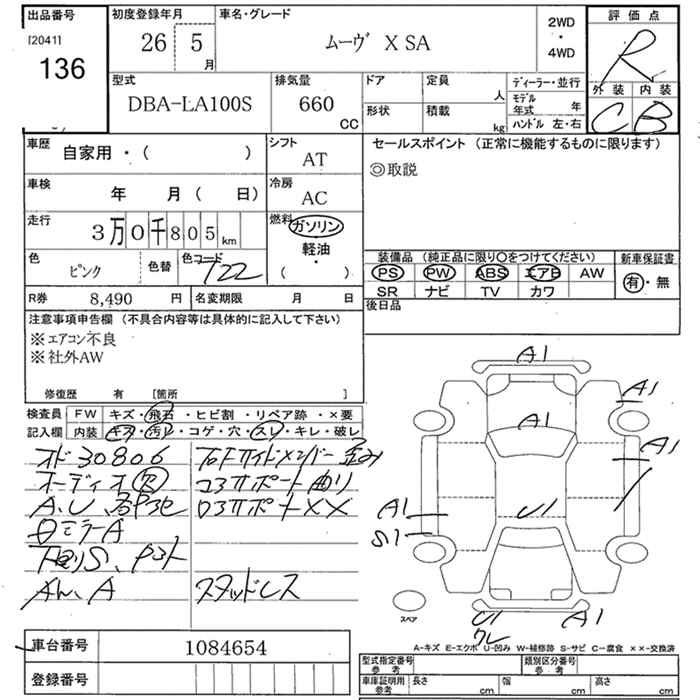 出品番号
[2041]
136
初度登録年月
26 5
月
車名・グレード
ムーヴ X SA
2WD
・
4WD
評価点
R
外装 内装
C B
型式
DBA-LA100S
排気量
660
CC
ドア
定員
人
形状
積載
kg
ディーラー・並行
モデル年式 年
ハンドル 左・右
車歴
自家用・( )
シフト
AT
車検
年 月 ( 日)
冷房
AC
走行
3万0千805 km
燃料
ガソリン
軽油
・
( )
色
ピンク
色替
色コード
T22
R券 8,490 円
名変期限 月 日
セールスポイント (正常に機能するものに限ります)
◎取説
装備品 (純正品に限り○をつけてください)
新車保証書
PS PW ABS エアB AW
SR ナビ TV カワ
有・無
後日品
注意事項申告欄 (不具合内容等は具体的に記入して下さい)
※エアコン不良
※社外AW
修復歴 有 [箇所 ]
検査員
記入欄
FW キズ・飛石・ヒビ割・リペア跡・×要
内装 キズ・汚レ・コゲ・穴・スレ・キレ・破レ
オド30806
オーディオ
A、U、
ミラーA
コアサポート曲り
ロアサポートXX
スタッドレス
A1
A1
A1
A1
A1
S1
U1
U1
ワレ
A1
スペア
A-キズ E-エクボ U-凹み W-補修跡 S-サビ C-腐食 ××-交換済
車台番号 1084654
登録番号
型式指定番号
参考
類別区分番号
参考
車庫証明用
参考
長さ cm
幅 cm
高さ cm